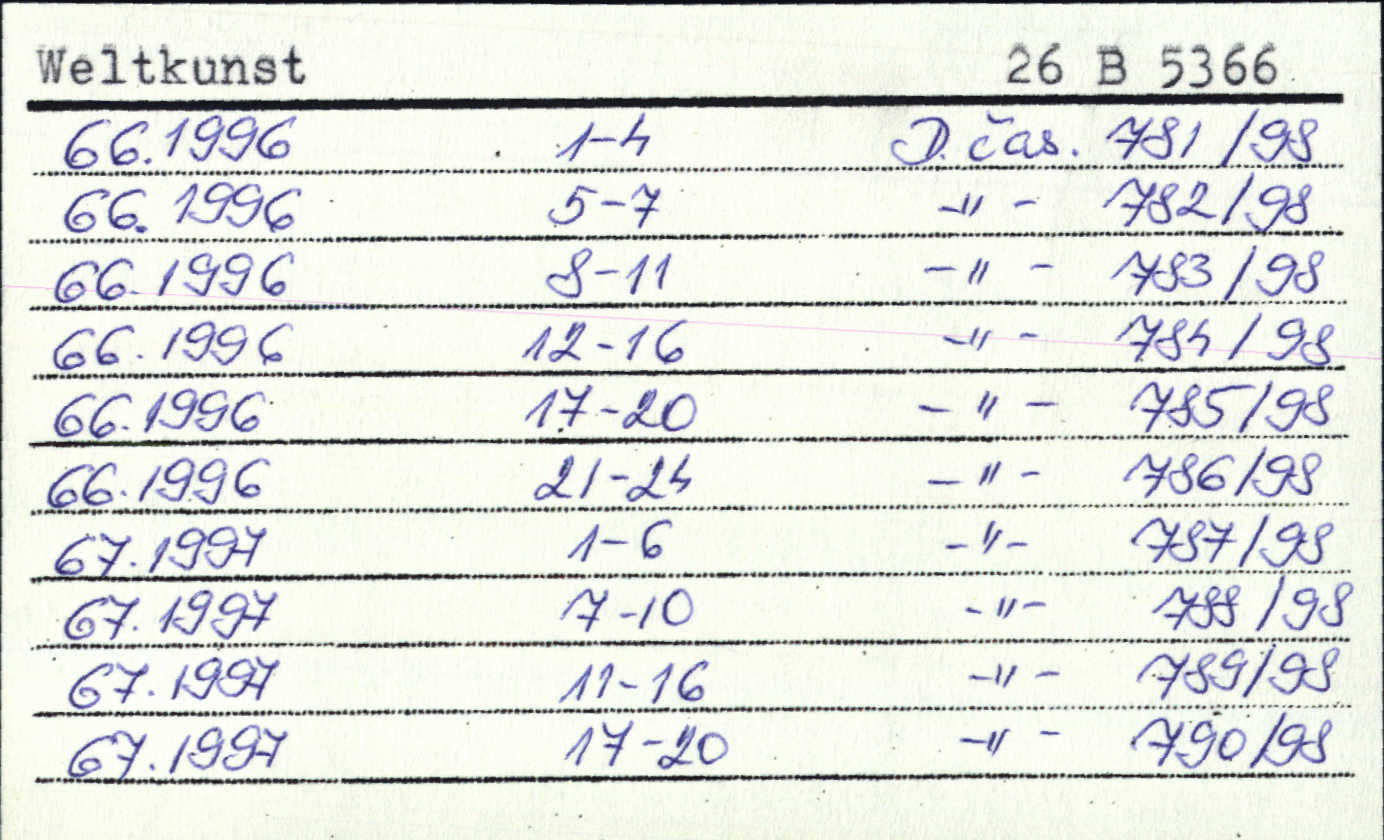 Weltkunst 26 B 5366
66.1996 1-4 D. čas. 781/98
66.1996 5-7 -"- 782/98
66.1996 8-11 -"- 783/98
66.1996 12-16 -"- 784/98
66.1996 17-20 -"- 785/98
66.1996 21-24 -"- 786/98
67.1997 1-6 -"- 787/98
67.1997 7-10 -"- 788/98
67.1997 11-16 -"- 789/98
67.1997 17-20 -"- 790/98